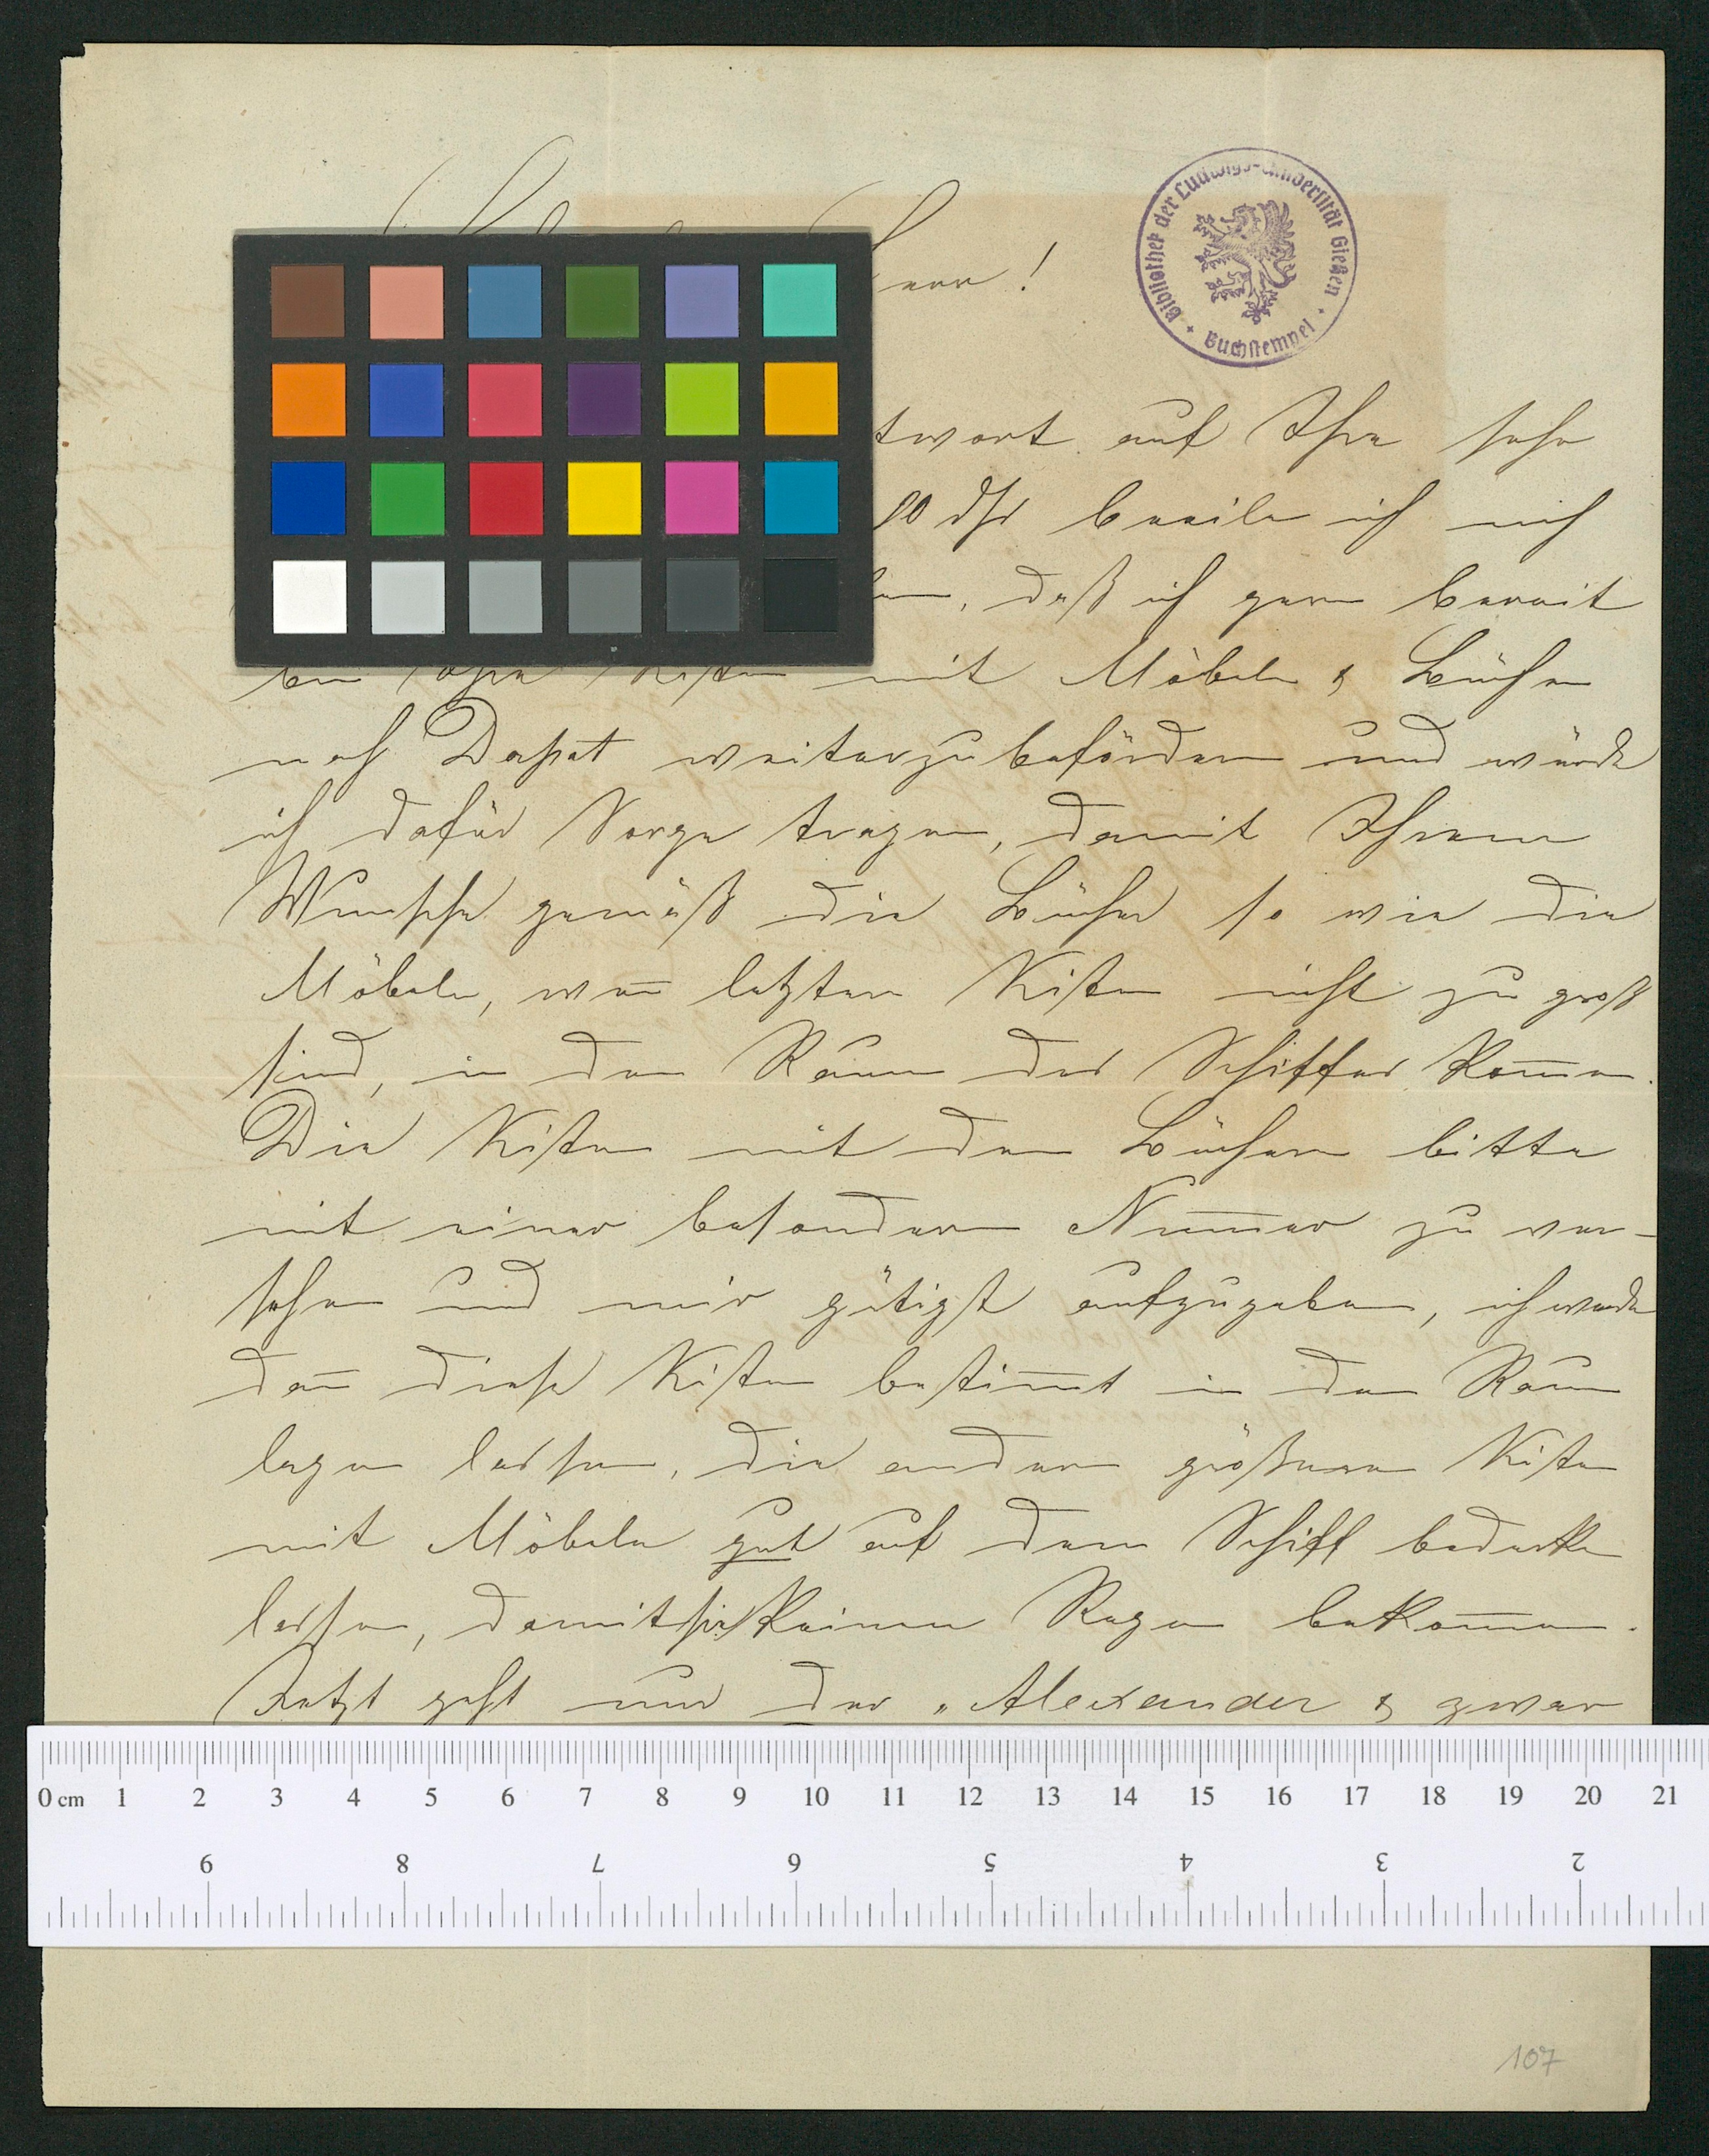 Bibliothek der Ludwigs-Universität Gießen
Buchstempel
!
twort auf Ihre sehr
20 dss beeile ich mich
daß ich gern bereit
bin Ihre Kisten mit Möbeln & Bücher
nach Dorpat weiterzubefördern und würde
ich dafür Sorge tragen, damit Ihrem
Wunsche gemäß die Bücher so wie die
Möbeln, weñ letztere Kisten nicht zu groß
sind, in den Raum des Schiffes kom̄en.
Die Kisten mit den Büchern bitte
mit einer besonderen Num̄er zu ver-
sehen und mir gütigst aufzugeben, ich werde
dañ diese Kisten bestim̄t in den Raum
legen lassen, die andern größeren Kisten
mit Möbeln gut auf dem Schiff bedecken
lassen, damit sie keinen Regen bekom̄en.
Jetzt geht nur der „Alexander & zwar
0 cm 1 2 3 4 5 6 7 8 9 10 11 12 13 14 15 16 17 18 19 20 21
9 8 7 6 5 4 3 2
107